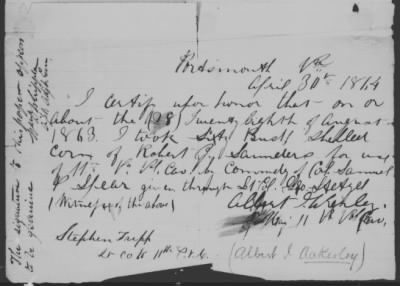 Portsmouth Va
April 30th 1864
I certify upon honor that on or
about the (28) Twenty Eighth of August
1863. I took Sixty Bush Shelled
Corn of Robert J. Saunders for use
of 11th P. V. Cav. by Command of Col Samuel
P Spear given through Lt
Albert J
Maj 11th Pa Cav.
(Witness of the above)
Stephen Tripp
Lt Co 11th P. V. C.
(Albert J. Ackerley)
The signature to this paper
to be genuine